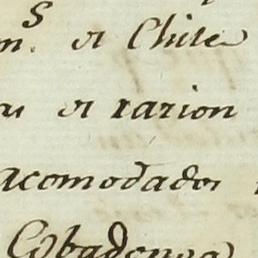 de Chile
de razion
acomodados
Cobadonga